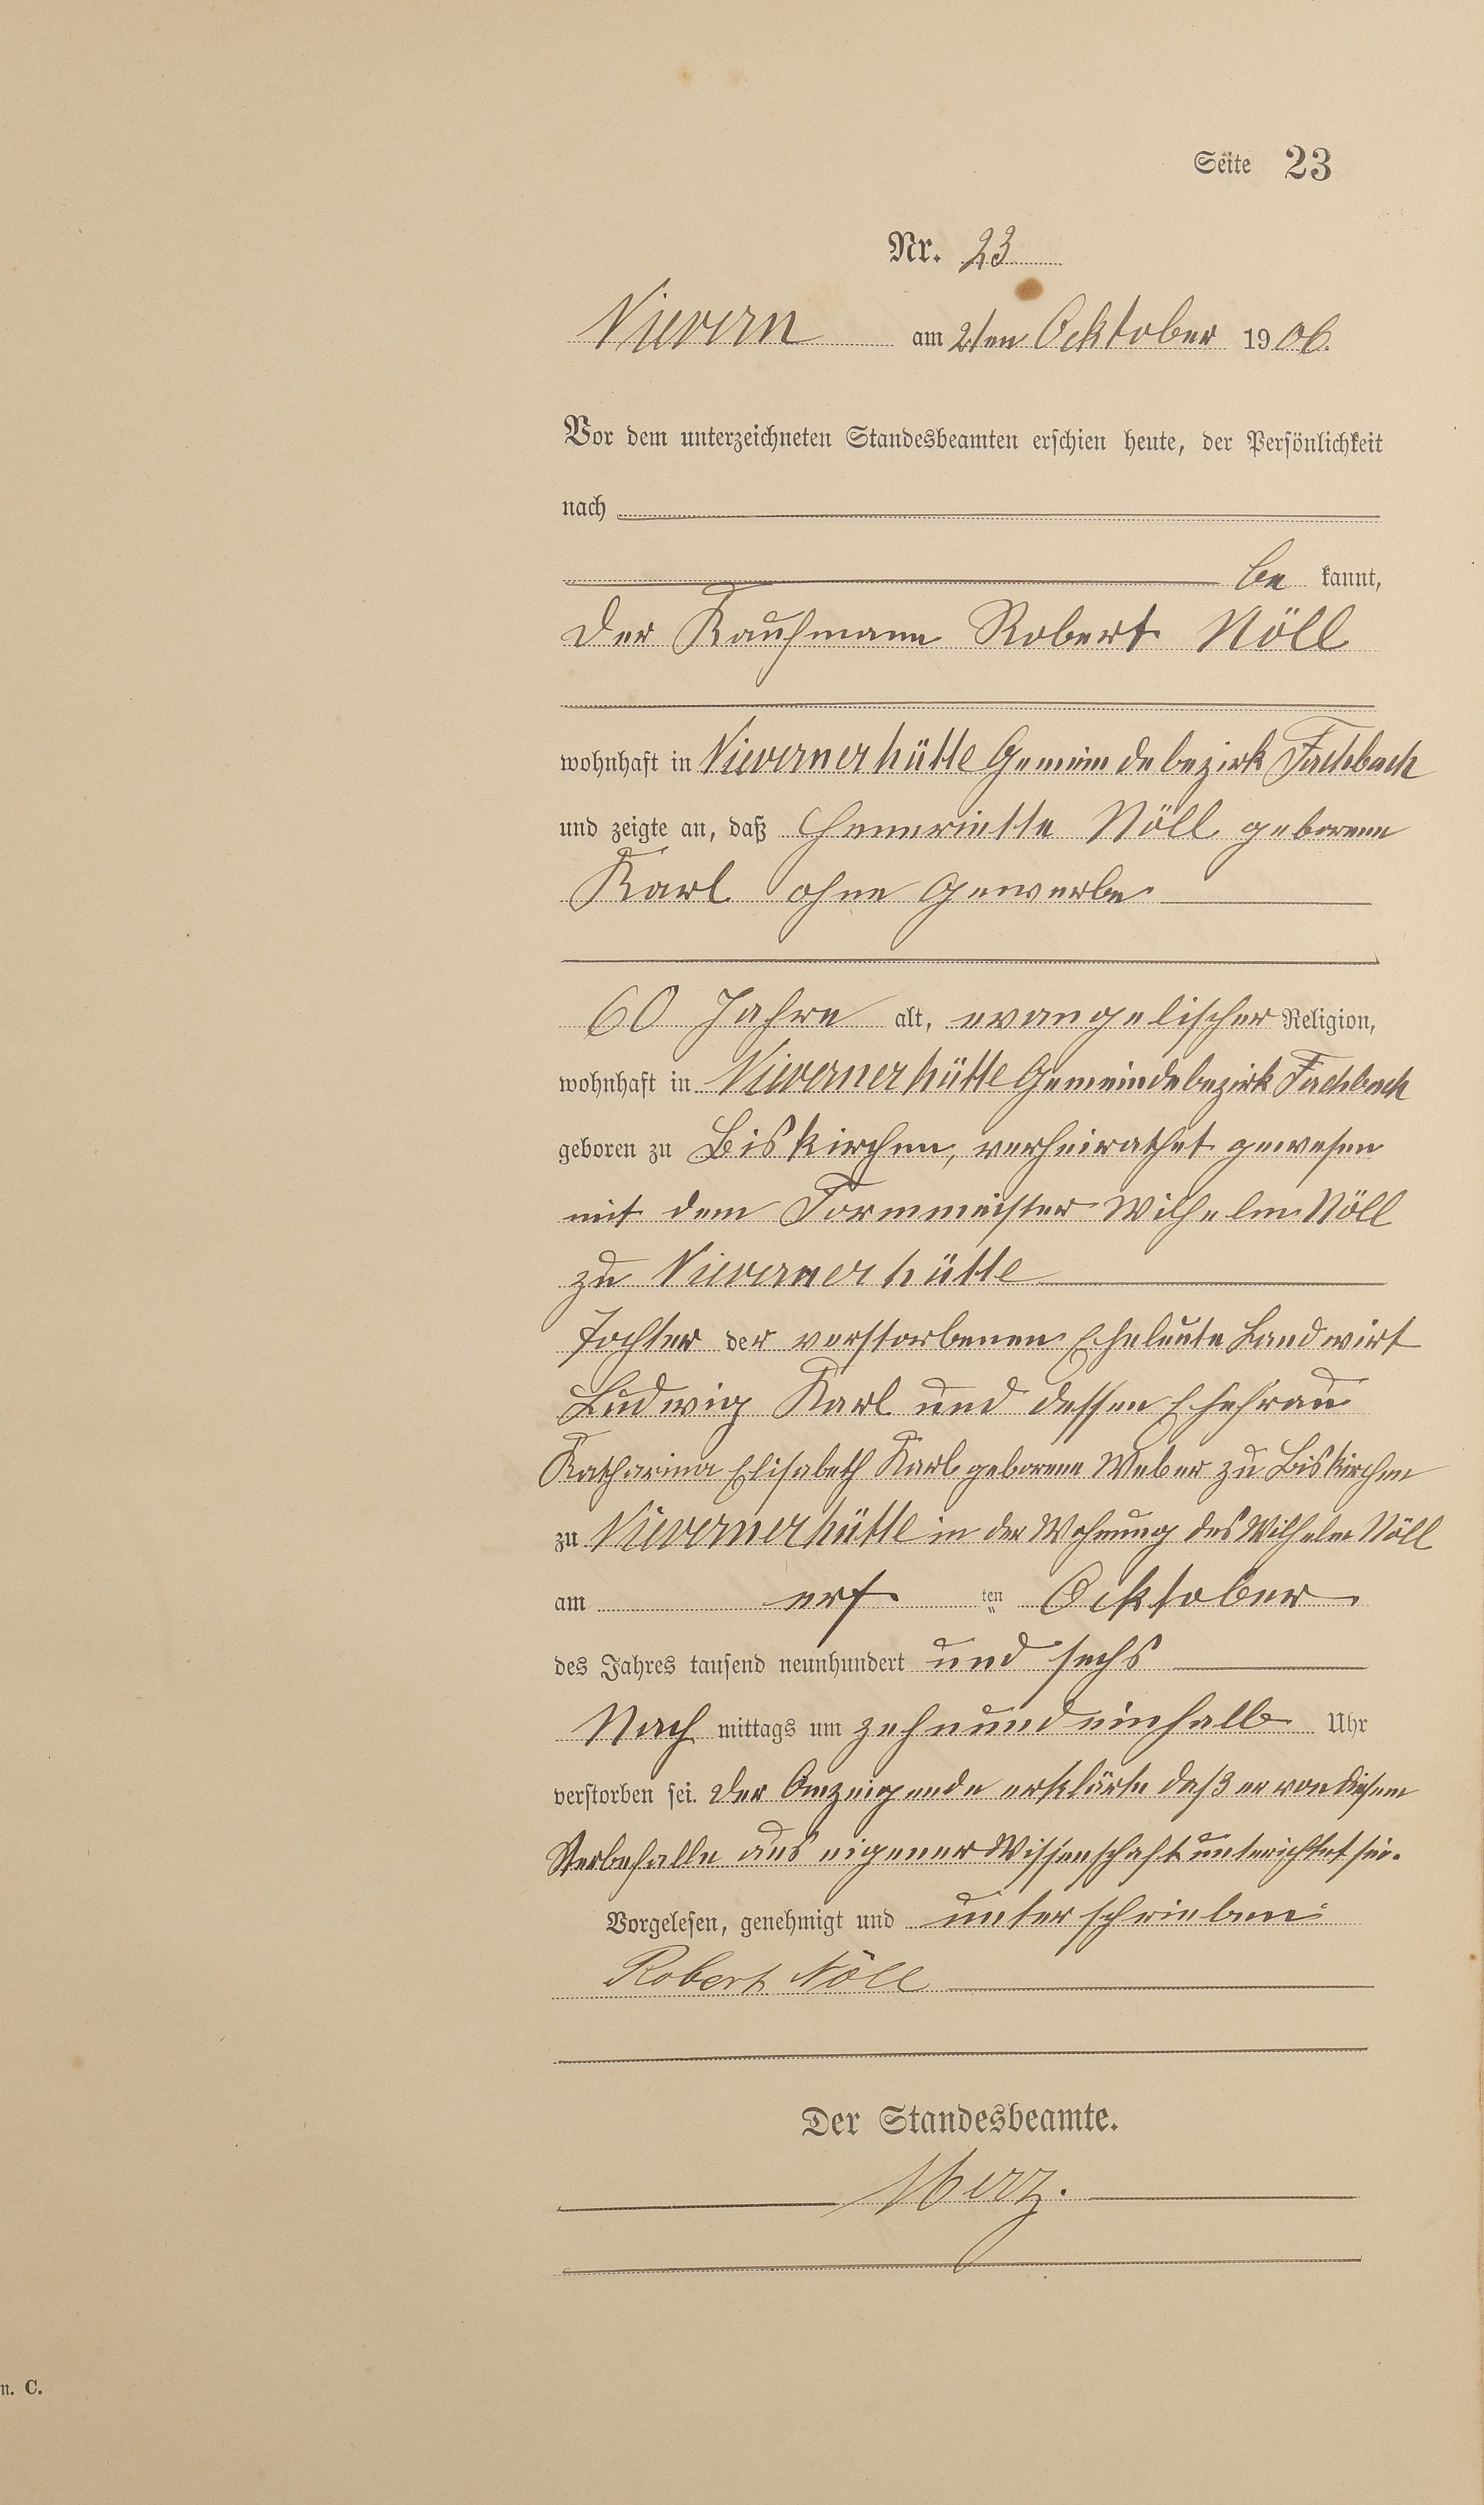 Seite 23
Nr. 23
Nievern am 2ten Ocktober 1906.
Vor dem unterzeichneten Standesbeamten erschien heute, der Persönlichkeit
nach
be kannt,
der Kaufmann Robert Nöll
wohnhaft in Nievernerhütte Gemeindebezirk Fachbach
und zeigte an, daß Hennriette Nöll geborene
Karl ohne Gewerbe
60 Jahre alt, evangelischer Religion,
wohnhaft in Nievernerhütte Gemeindebezirk Fachbach
geboren zu Biskirchen, verheirathet gewesen
mit dem Formmeister Wilhelm Nöll
zu Nievernerhütte
Tochter der verstorbenen Eheleute Landwirt
Ludwig Karl und dessen Ehefrau
Katharina Elisabeth Karl geborene Weber zu Biskirchen
zu Nievernerhütte in der Wohnung des Wilhelm Nöll
am ersten Ocktober
des Jahres tausend neunhundert und sechs
Nach mittags um zehnundeinhalb Uhr
verstorben sei. Der Anzeigende erklärte daß er von diesem
Sterbefalle aus eigener Wissenschaft unterichtet sei.
Vorgelesen, genehmigt und unterschrieben
Robert Nöll
Der Standesbeamte.
Merz.
n. C.